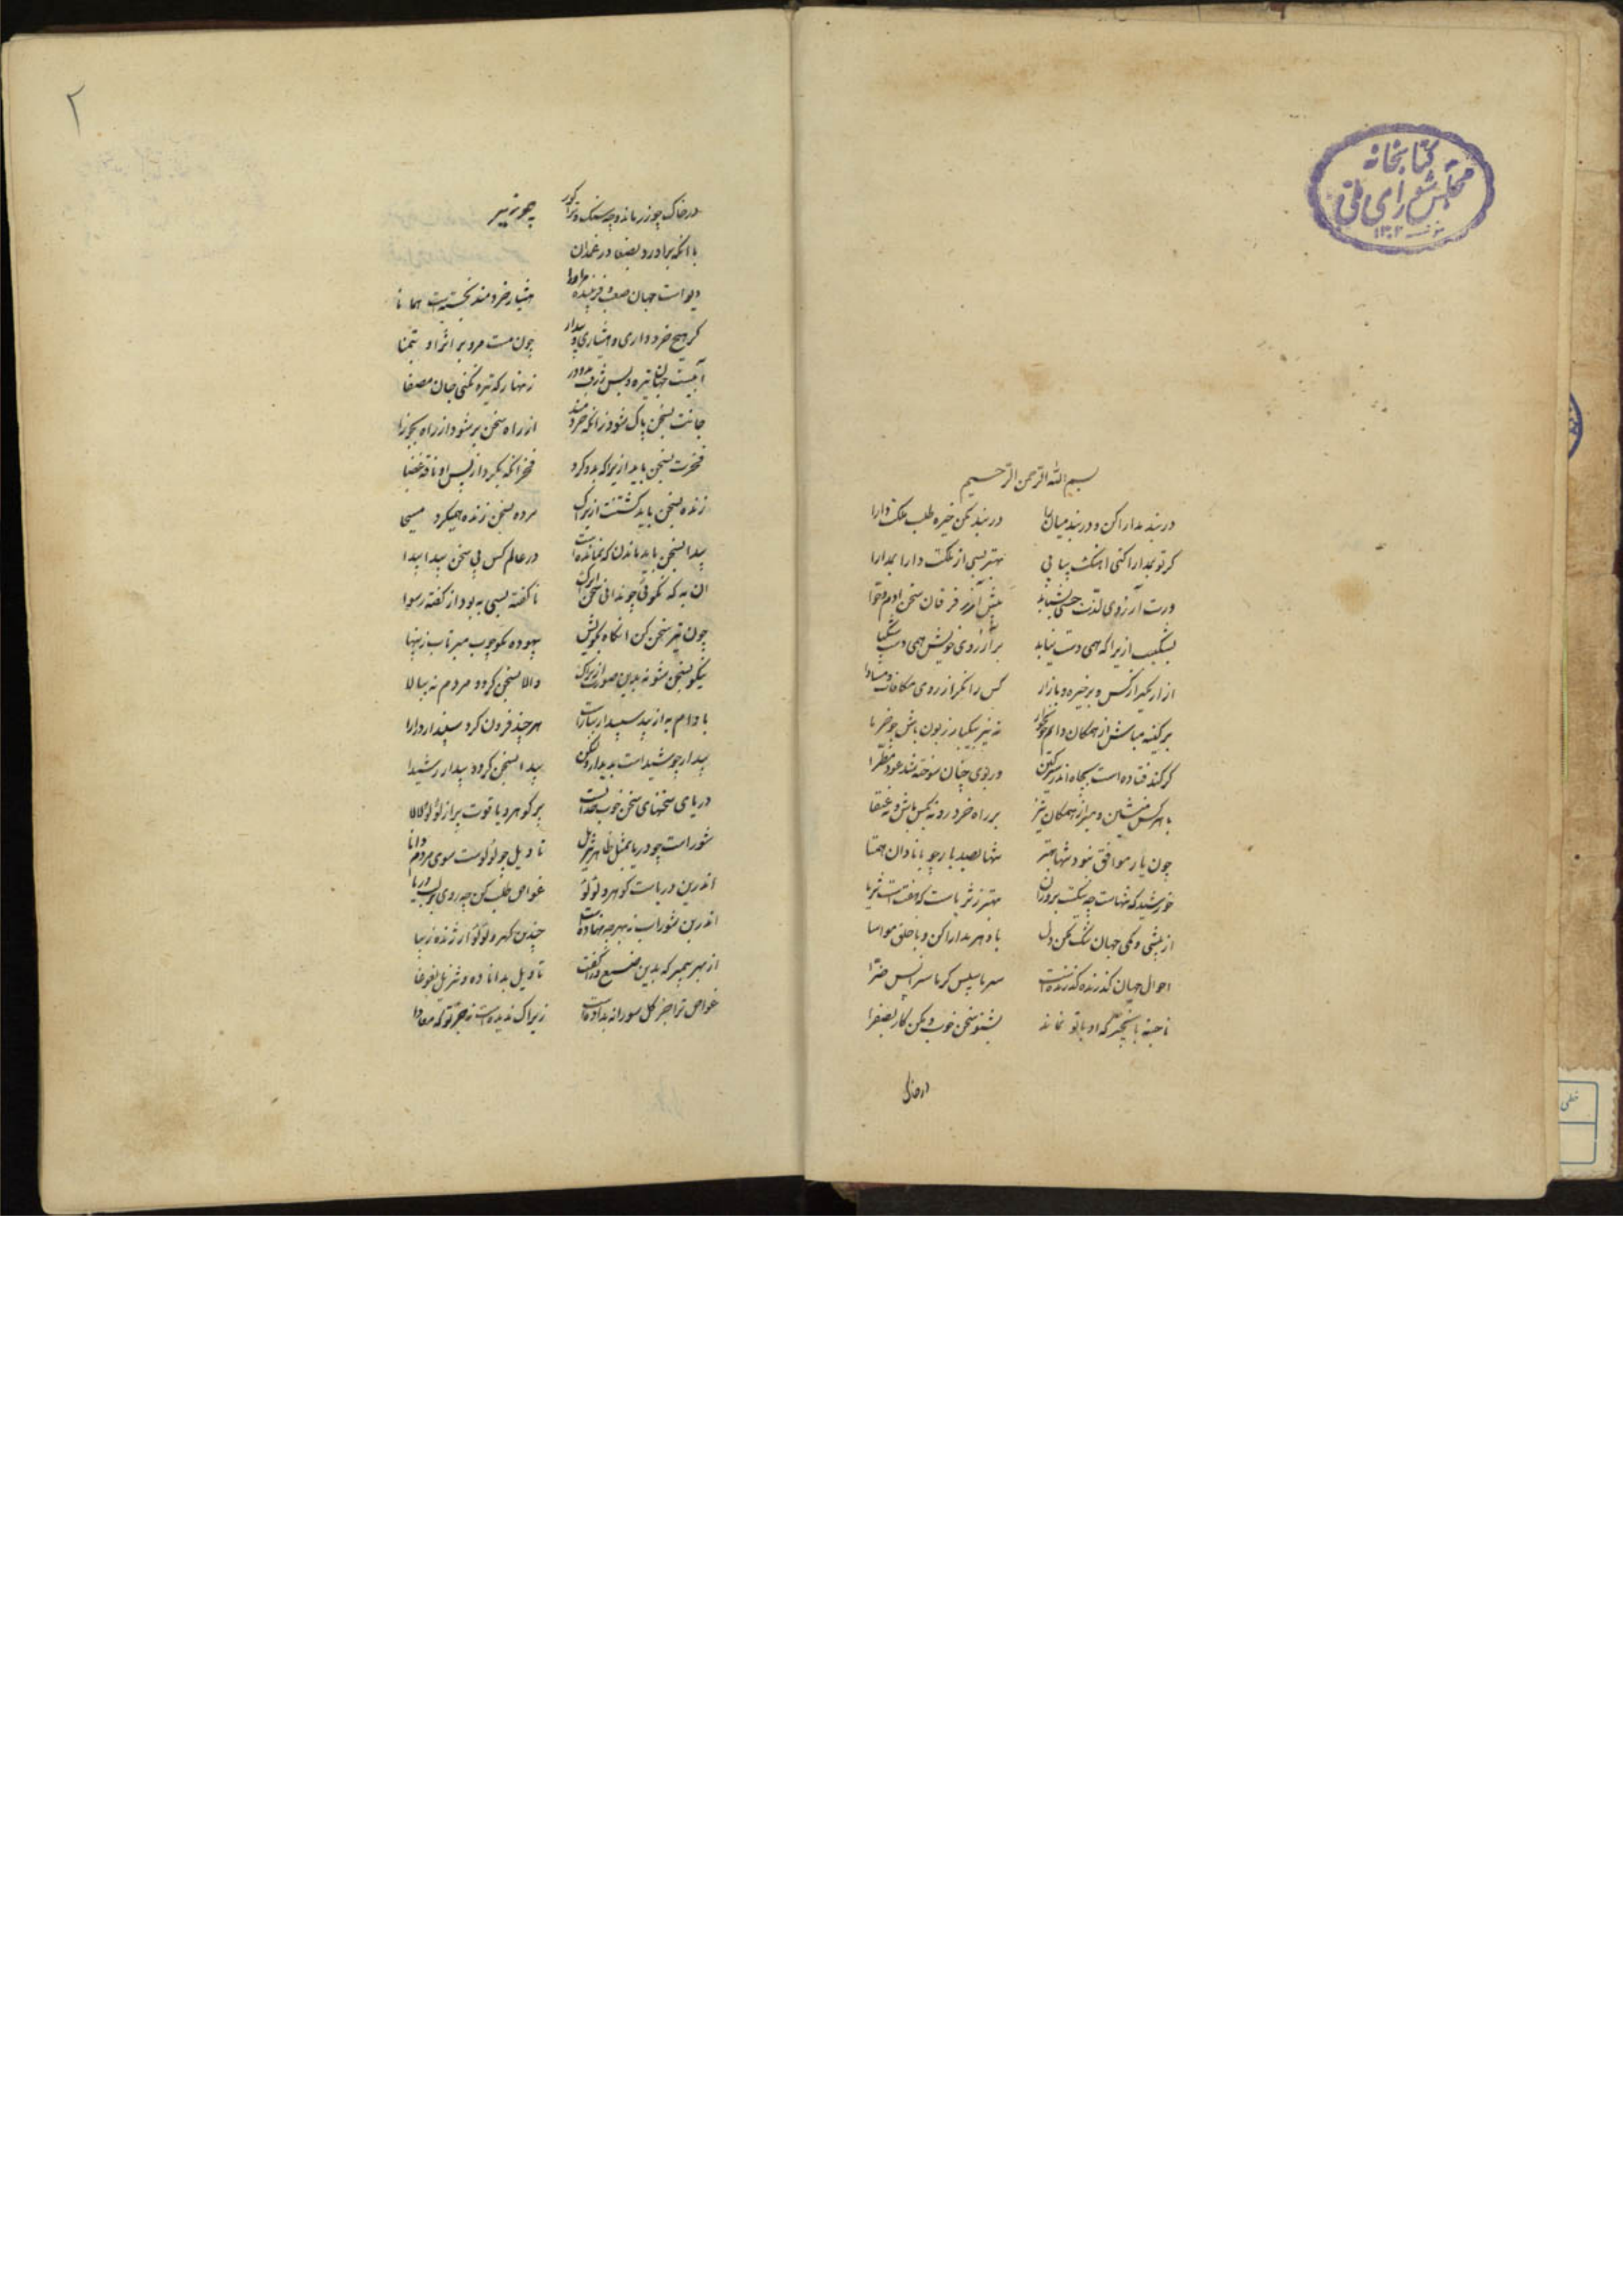 کتابخانه
مجلس شورای ملی
۱۳۰۲
بسم الله الرحمن الرحیم
در بند مدارا کن و در بند میان را در بند مکن خیره طلب ملکت دارا
کر تو بمدارا کنی اهنک بیابی بهتر بسی از ملکت دارا بمدارا
ورت آرزوی لذت حسی بشتابد پیش آر ز فرقان سخن آدم و حوا
بشکیب ازیرا که همی دست نیابد بر آرزوی خویش همی دست شکیبا
ازار مکیر از کس و بر خیره میازار کس را مکر از روی مکافات مساوا
پر کینه مباش از همکان دایم چون خار نه نیز بیکباره زبون باش چو خرما
کز کند فتاده است بچاه اندر سرکین وز بوی چنان سوخته شد عود مطرا
با هر کس منشین و مبر از همکان نیز بر راه خرد رو نه مکس باش و نه عنقا
چون یار موافق نبود تنها بهتر تنها بصد بار چو با نادان همتا
خورشید که تنهاست چه نکست برو زان بهتر ز ثریاست که هفت است ثریا
از بیشی و کمی جهان تنک مکن دل با دهر مدارا کن و با خلق مواسا
احوال جهان کذرنده کذرنده است سرما سپس کرما سرا پس ضرا
ناجسته با آن چیز که او با تو نماند بشنو سخن خوب و مکن کار بصفرا
در خاک
۲
در خاک چه زر ماند و چه سنک و ترا کور چه زیر
با آنکه برآورد بصنعا در غمدان
دیو است جهان صعب و فریبنده مر او را هشیار خردمند نجسته است همانا
کر هیچ خرد داری و هشیاری و بیدار چون مست مرو بر اثر او بتمنا
آبیست جهان تیره و بس ژرف بدو در زنهار که تیره نکنی جان مصفا
جانت بسخن پاک شود زانکه خردمند از راه سخن بر شود از چاه بجوزا
فخرت بسخن باید ازیرا که بدو کرد فخر آنکه بکرد از پس او ناقه عضبا
زنده بسخن باید کشتنت ازیراک مرده بسخن زنده همیکرد مسیحا
پیدا بسخن باید ماندن که نمانده است در عالم کس بی سخن پیدا پیدا
آن به که نکوئی چو ندانی سخن ایراک ناکفته بسی به بود از کفته رسوا
چون تیر سخن کن انکاه بکویش بیهوده مکو چوب مپرتاب ز پهنا
نیکو بسخن شو نه بدین صورت ازیراک والا بسخن کردد مردم نه ببالا
بادام به از بید سپیدار ببارست هر چند فزون کرد سپیدار درازا
بیدار چو شیداست بدیدار ولیکن پیدا بسخن کردد بیدار ز شیدا
دریای سخنها سخن خوب خدایست پر کوهر و یاقوت پر از لؤلؤ لالا
شوراست چو دریا بمثل ظاهر تنزیل تاویل چو لؤلوست سوی مردم دانا
اندر بن دریاست کوهر و لؤلؤ غواص طلب کن چه روی بر لب دریا
اندر بن شوراب ز بهر چه نهاده است چندین کهر و لؤلؤ ارزنده زیبا
از بهر پیمبر که بدین صنع ورا کفت تاویل بدانا ده و تنزیل بغوغا
غواص ترا جز کل و سورابه نداده است زیراک ندیده است ز تو جز که معادا